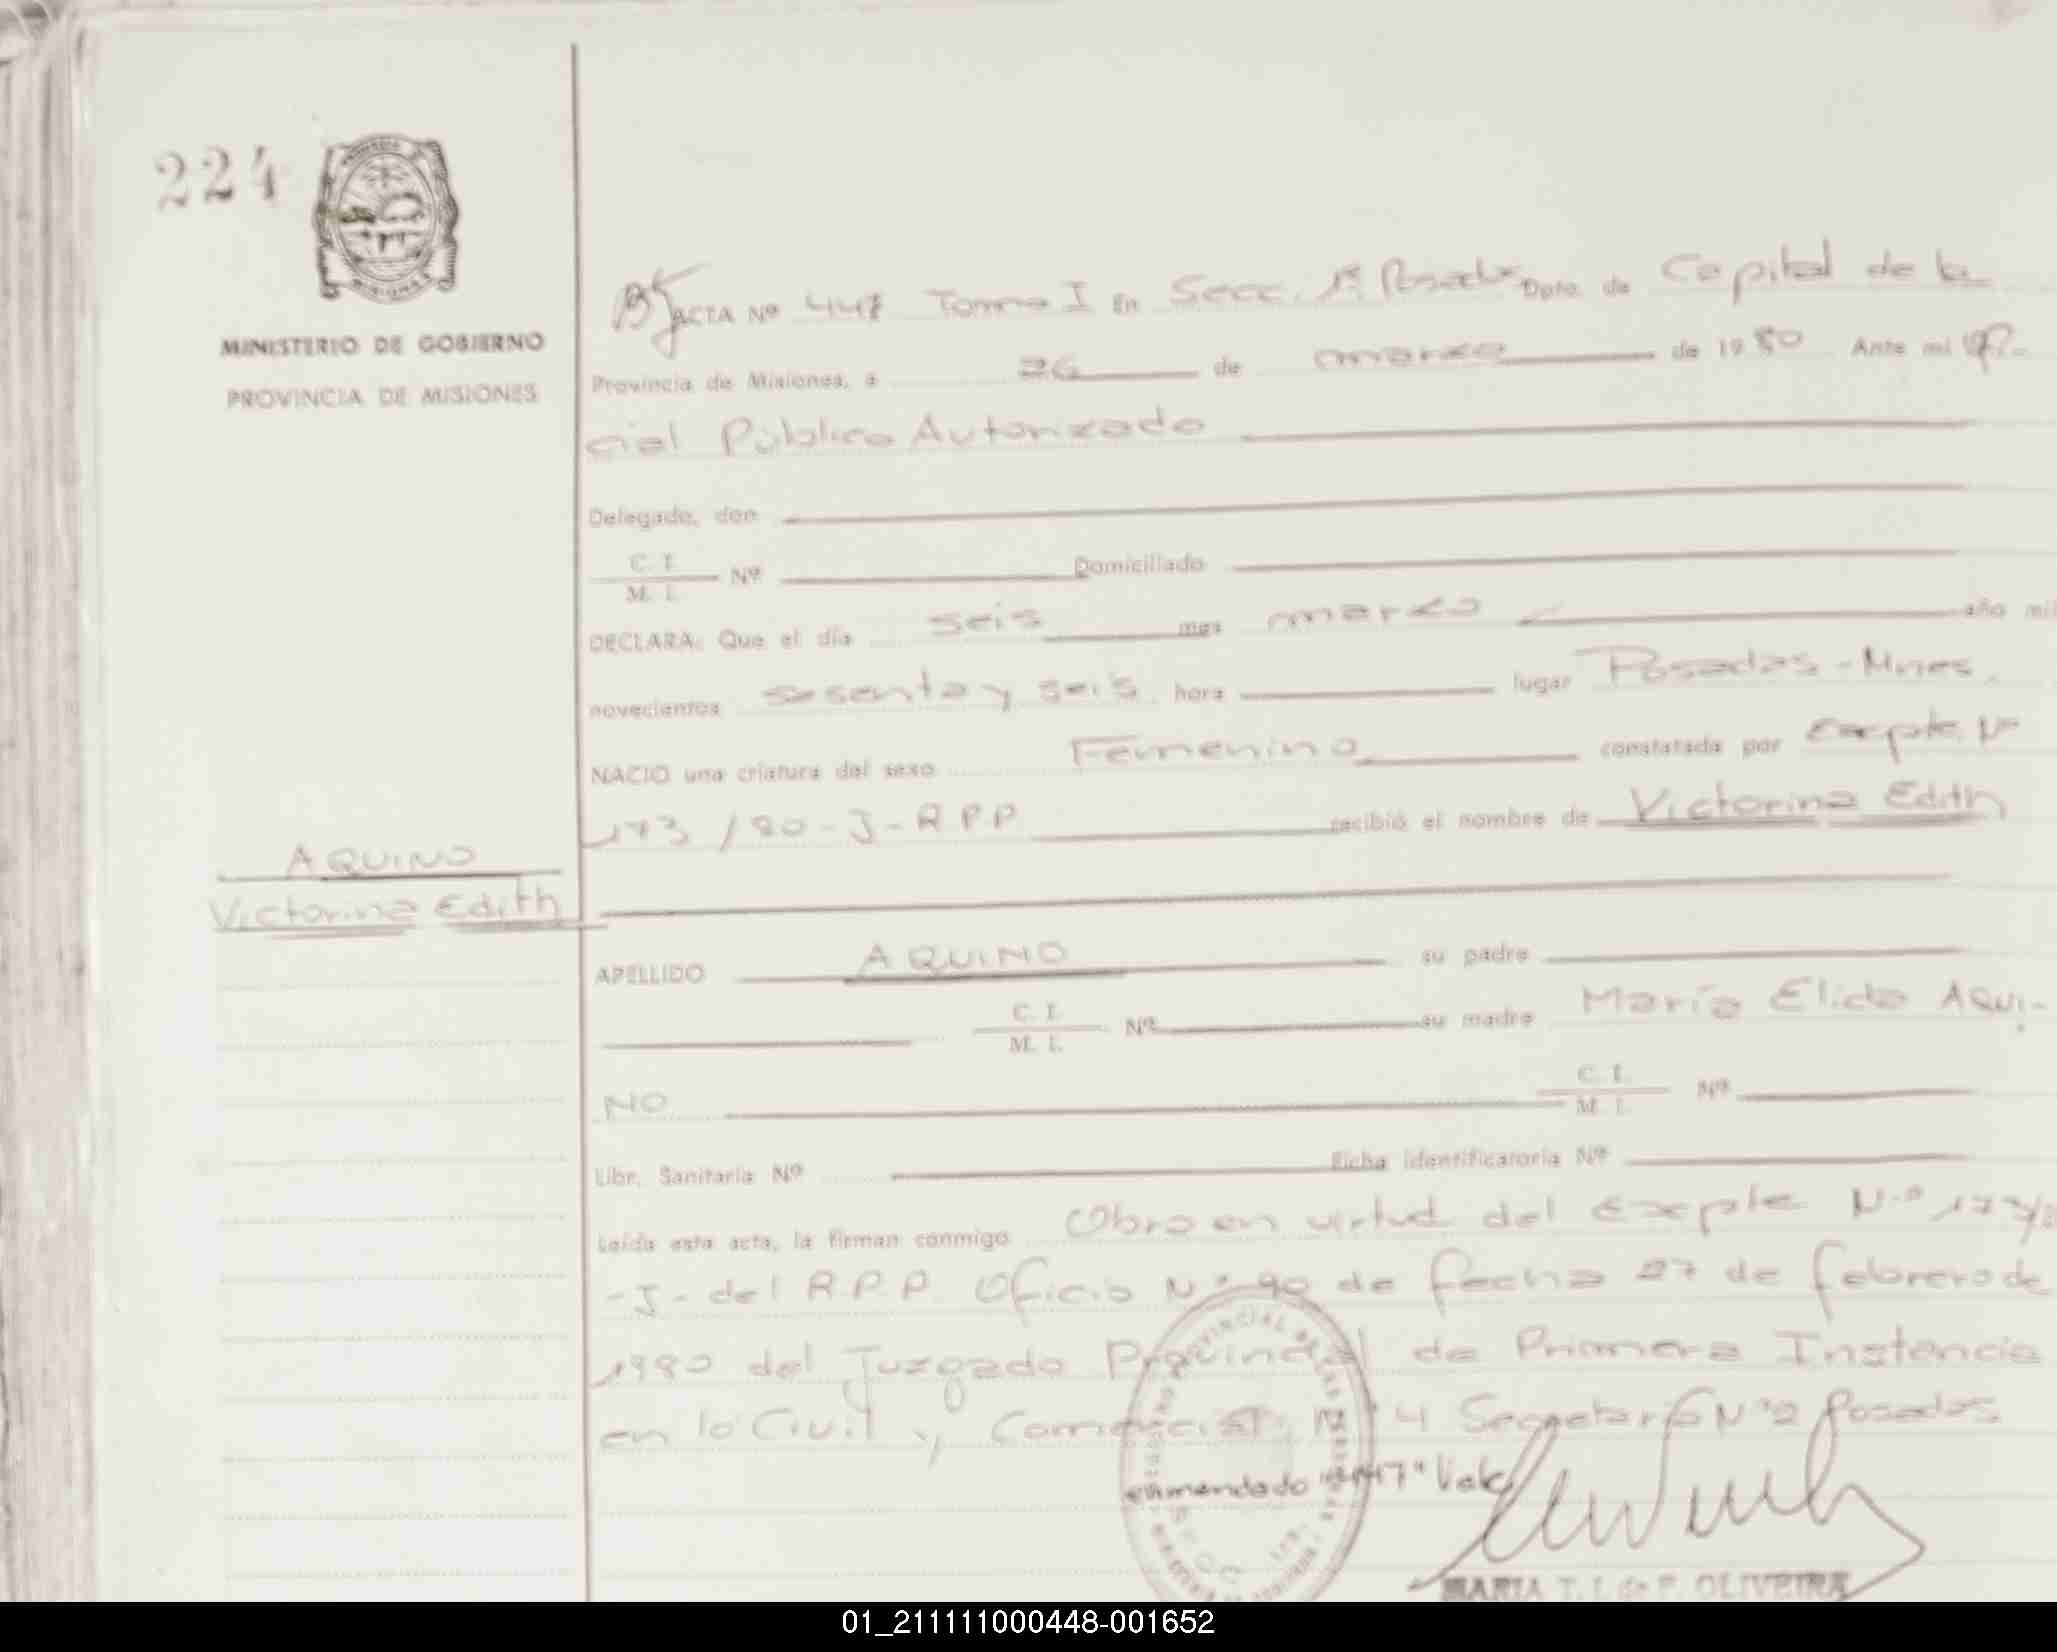 224
MINISTERIO DE GOBIERNO
PROVINCIA DE MISIONES
ACTA Nº 447 Tomo I En Secc. 1ª Posadas Dpto. de Capital de la
Provincia de Misiones, a 26 de marzo de 1980 Ante mi Ofi-
cial Público Autorizado
Delegado, don
C. I.
M. I.
Nº Domiciliado
DECLARA: Que el día seis mes marzo año mil
novecientos sesenta y seis hora lugar Posadas - Mnes.
NACIO una criatura del sexo Femenino constatada por Expte. Nº
173/80-J-R.P.P recibió el nombre de Victorina Edith
AQUINO
Victorina Edith
APELLIDO AQUINO su padre
C. I.
M. I.
Nº su madre María Elida AQUI-
NO
C. I.
M. I.
Nº
Libr. Sanitaria Nº Ficha identificatoria Nº
Leída esta acta, la firman conmigo Obro en virtud del Expte Nº 173/
-J- del R.P.P. Oficio Nº 90 de fecha 27 de febrero de
1980 del Juzgado Provincial de Primera Instancia
en lo Civil y Comercial Nº 4 Secretaría Nº 2 Posadas
enmendado "447" Vale
MARIA T. I. de F. OLIVEIRA
01_211111000448-001652